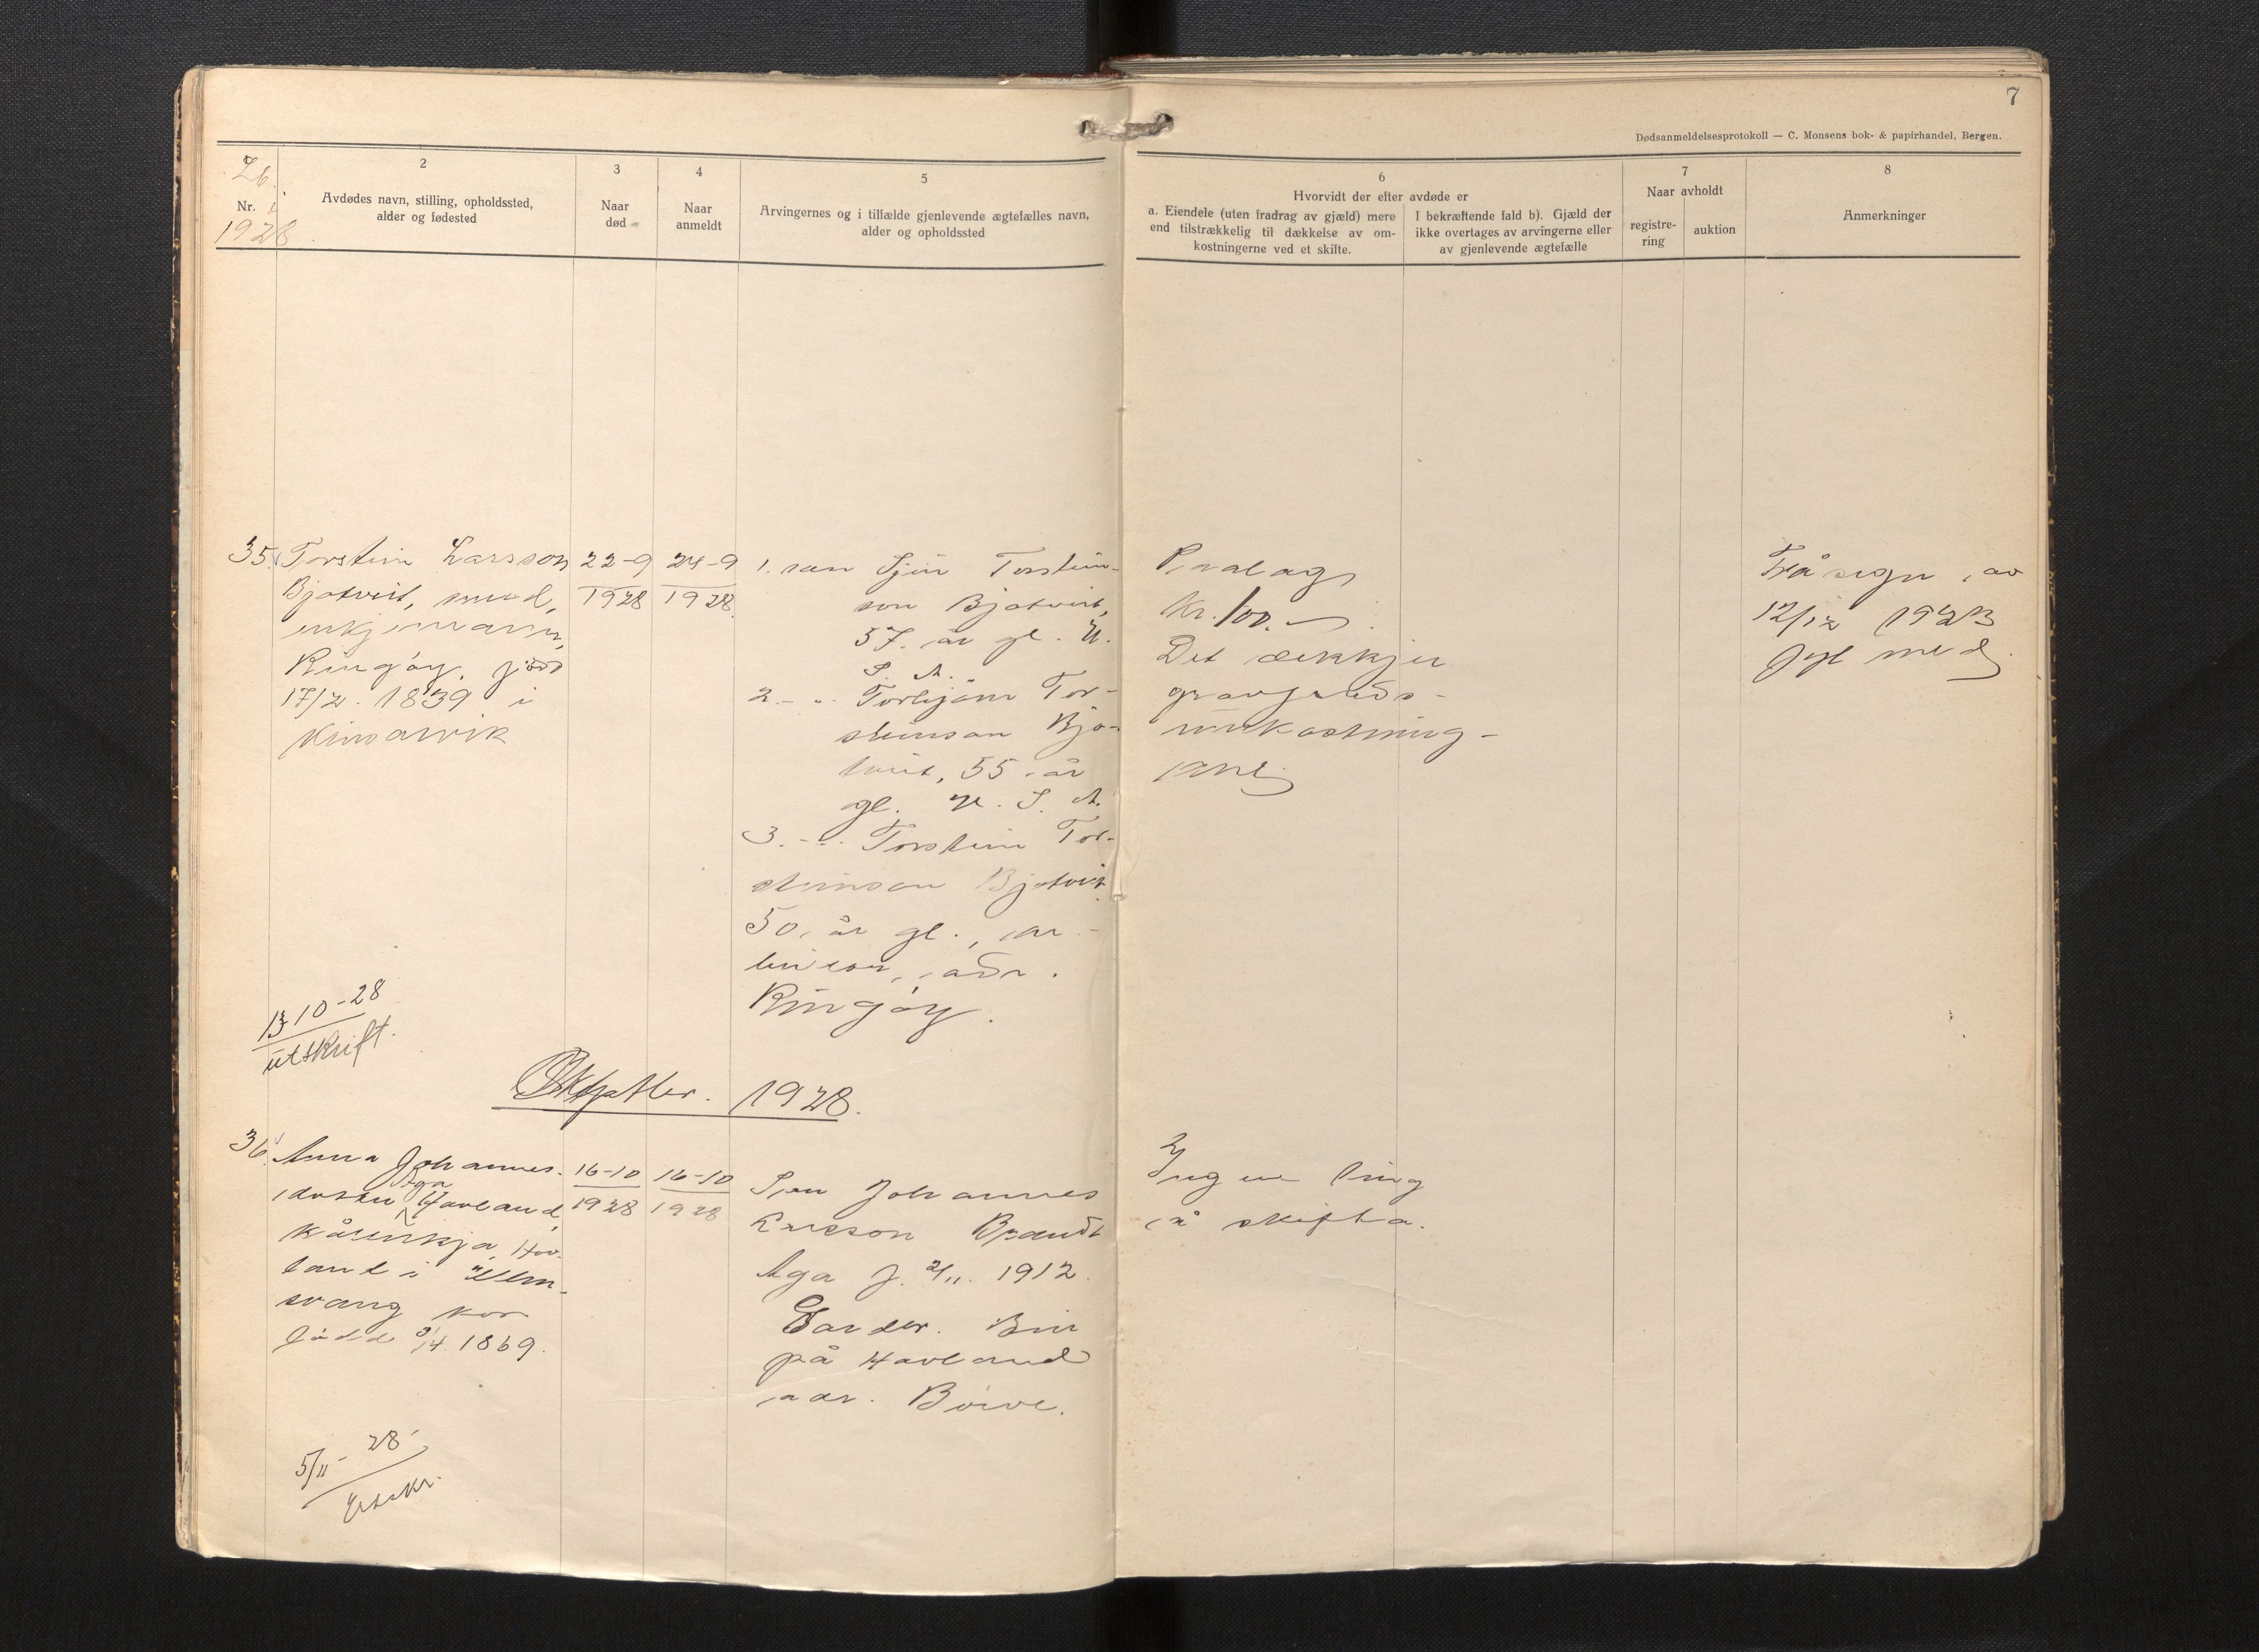 7
Dødsanmeldelsesprotokoll — C. Monsens bok- & papirhandel, Bergen.
Nr. i
1928
2
Avdødes navn, stilling, opholdssted,
alder og fødested
3
Naar
død
4
Naar
anmeldt
5
Arvingernes og i tilfælde gjenlevende ægtefælles navn,
alder og opholdssted
6
Hvorvidt der efter avdøde er
a. Eiendele (uten fradrag av gjæld) mere
end tilstrækkelig til dækkelse av om-
kostningerne ved et skifte.
I bekræftende fald b). Gjæld der
ikke overtages av arvingerne eller
av gjenlevende ægtefælle
7
Naar avholdt
registre-
ring
auktion
8
Anmerkninger
35. Torstein Larsson
Bjotveit,
enkjemann,
Ringöy, född
17/2. 1839 i
Kinsarvik
22-9
1928
24-9
1928
1. son Torstein-
son Bjotveit,
57 år gl. U.
S. A.
2. - " - Torbjörn Tor-
steinson Bjo-
tveit, 55 år
gl. U. S. A.
3. - " - Torstein Tor-
steinson Bjotveit
50 år gl., ar-
beidar, adr.
Ringöy.
Kr. 100.-
Det dekkjer
gravferds-
umkostning-
ane
Fråsegn av
12/12 1923
fyl med
13/10-28
utskrift.
Oktober. 1928.
36. Anna Johannes-
dotter Aga Hovland,
Kårenkja, Hov-
land i Ullen-
svang
född 9/4 1869.
16-10
1928
16-10
1928
Son Johannes
Larsson Brandt
Aga f. 2/11. 1912
Gardar. Bur
på Hovland
adr. Börve.
Ingen ting
å skifta.
5/11-28
Utskr.